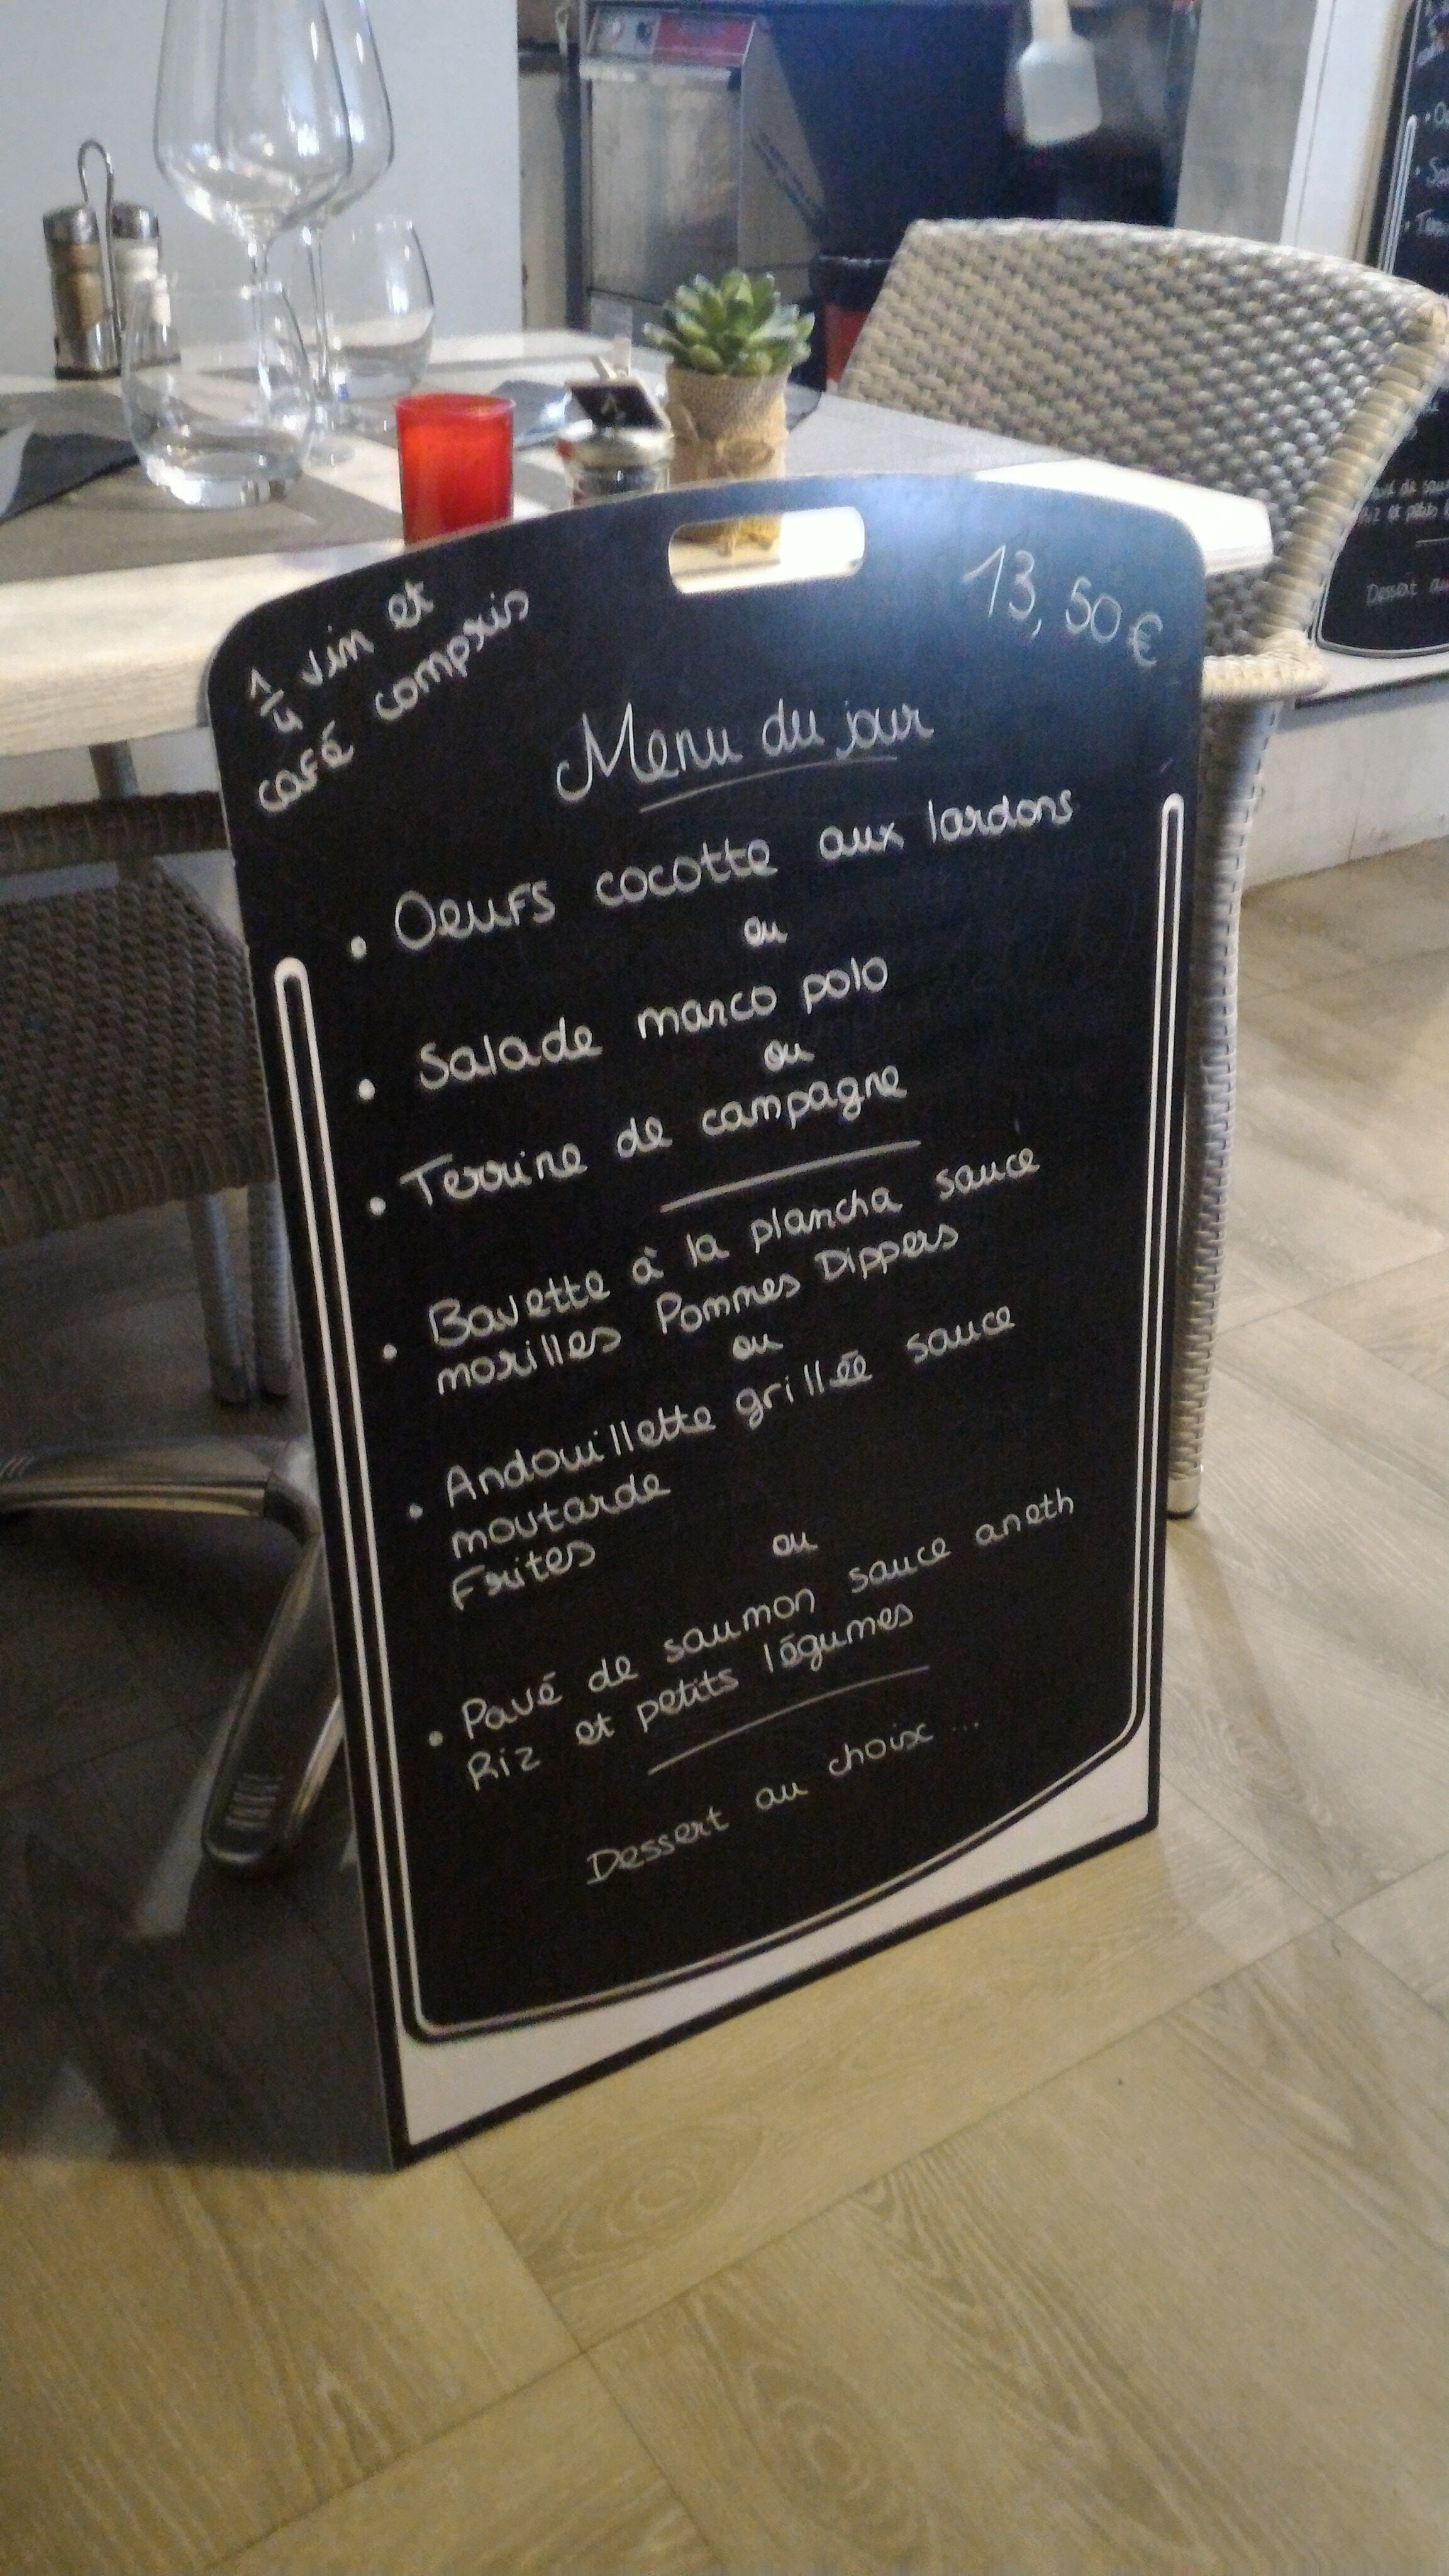 1/4 vin et
café compris
13,50€
Menu du jour
• Oeufs cocotte aux lardons
ou
• Salade marco polo
ou
• Terrine de campagne
• Bavette à la plancha sauce
morilles Pommes Dippers
ou
• Andouillette grillée sauce
moutarde
Frites
ou
• Pavé de saumon sauce aneth
Riz et petits légumes
Dessert au choix ...
Riz et petits
Dessert au